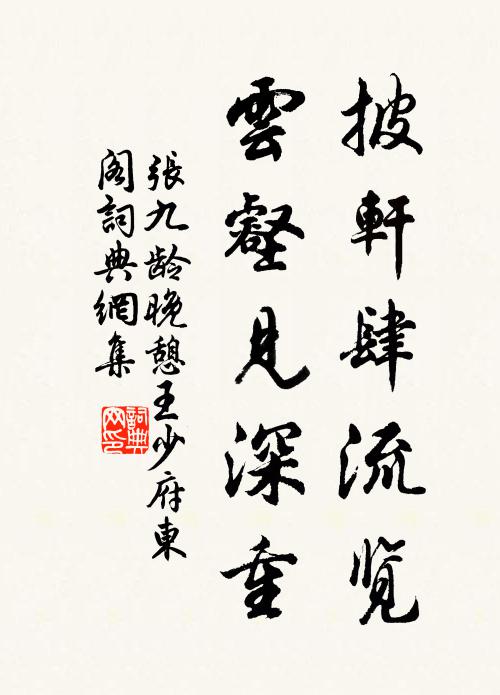 披軒肆流览
雲壑見深重
張九龄晚憩王少府東
閣詞典網集
詞典网印